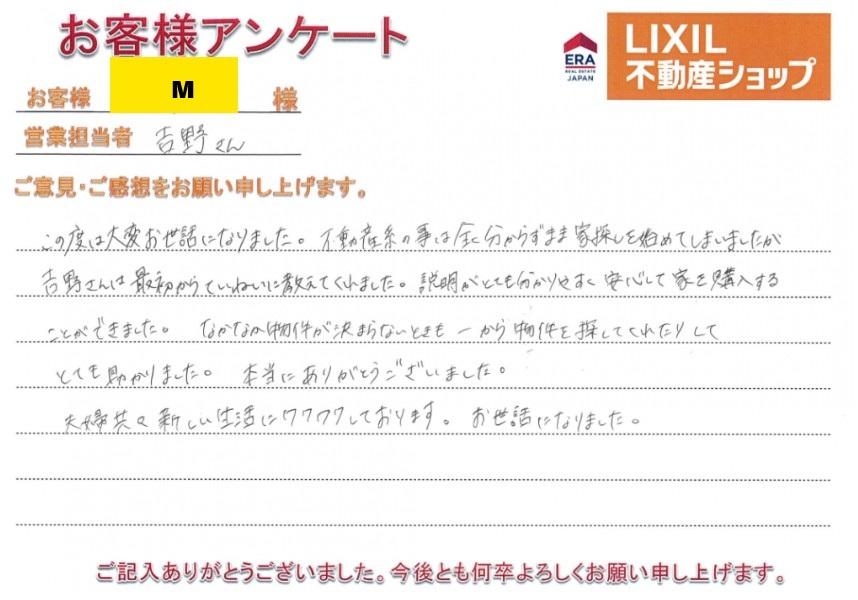 お客様アンケート
ERA
REAL ESTATE
JAPAN
LIXIL
不動産ショップ
お客様 M 様
営業担当者 吉野さん
ご意見・ご感想をお願い申し上げます。
この度は大変お世話になりました。不動産系の事は全く分からずまま家探しを始めてしまいましたが
吉野さんは最初からていねいに教えてくれました。説明がとても分かりやすく安心して家を購入する
ことができました。 なかなか物件が決まらないときも一から物件を探してくれたりして
とても助かりました。 本当にありがとうございました。
夫婦共々新しい生活にワクワクしております。 お世話になりました。
ご記入ありがとうございました。今後とも何卒よろしくお願い申し上げます。